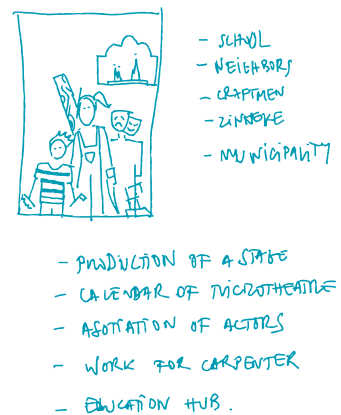 - SCHOOL
- NEIGHBORS
- CRAFTMEN
- ZINNEKE
- MUNICIPALITY
- PRODUCTION OF A STAGE
- CALENDAR OF MICROTHEATTRE
- ASOTIATION OF ACTORS
- WORK FOR CARPENTER
- EDUCATION HUB.